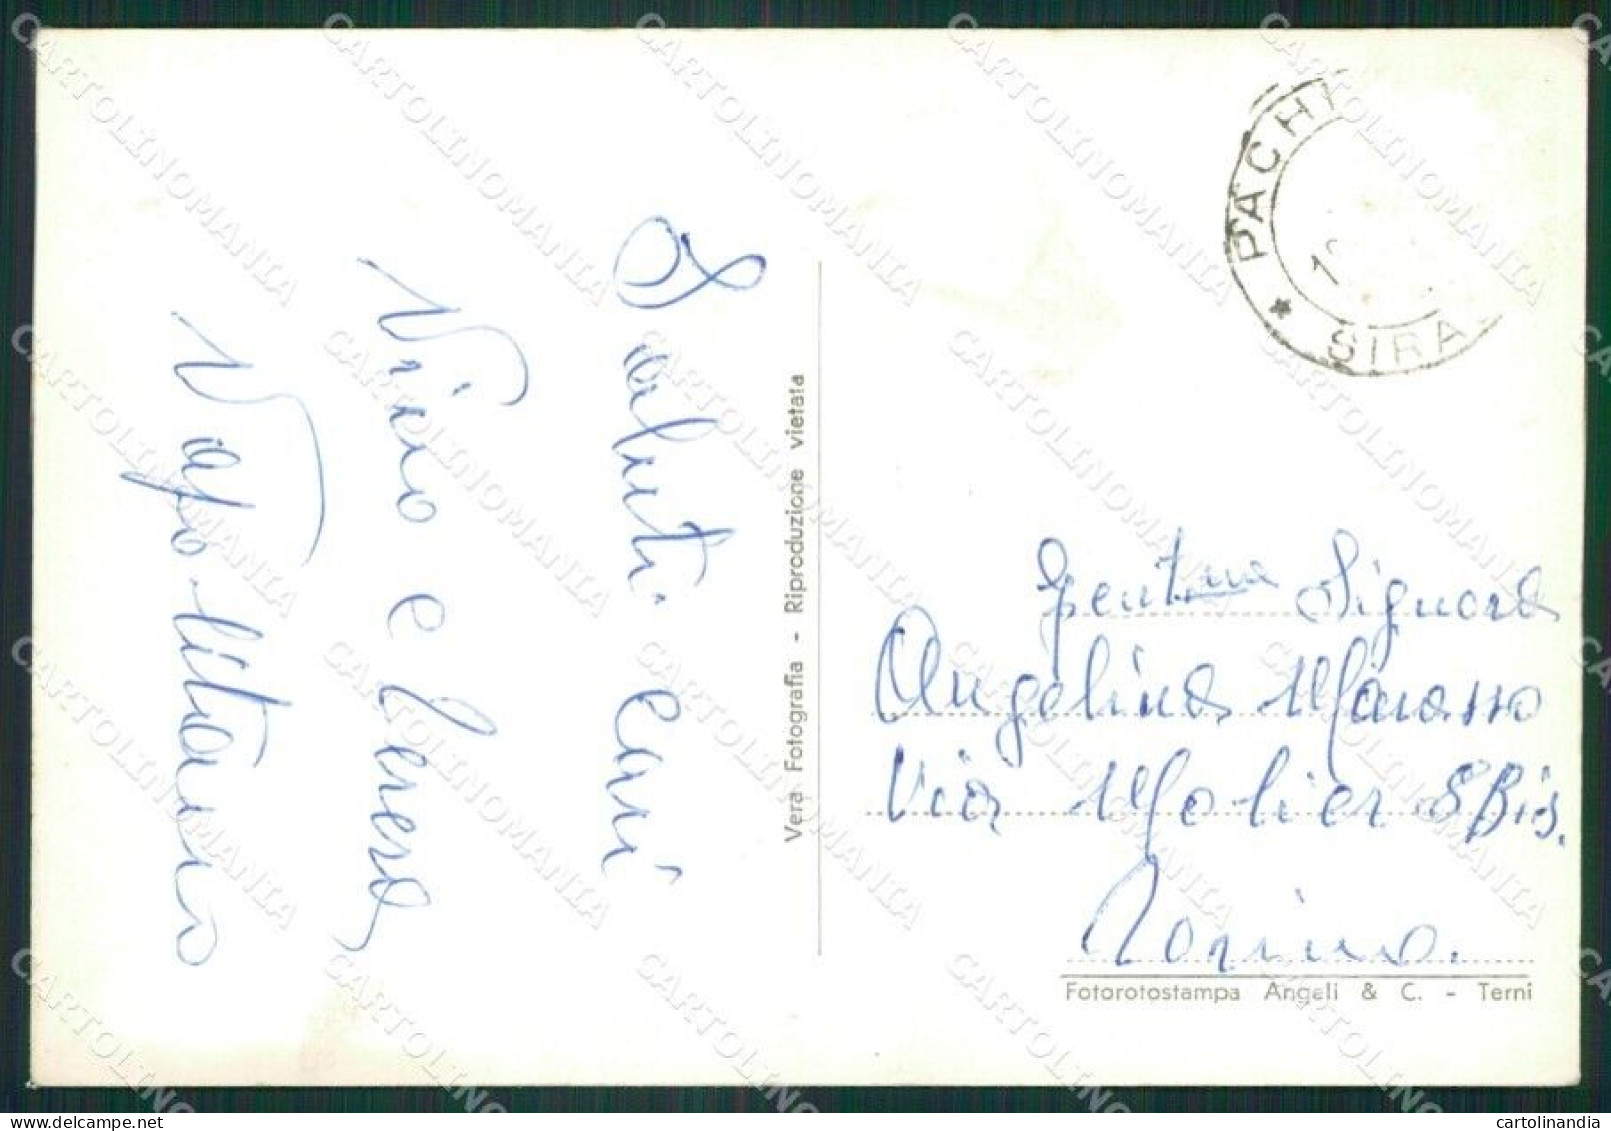 Saluti cari
Nino e
Napolitano
Vera Fotografia - Riproduzione vietata
PACHI
SIRA
Gent.ma Signora
Angelina Marasso
Via Molier 8 Bis.
Torino.
Fotorotostampa Angeli & C. - Terni
CARTOLINOMANIA
cartolinandia